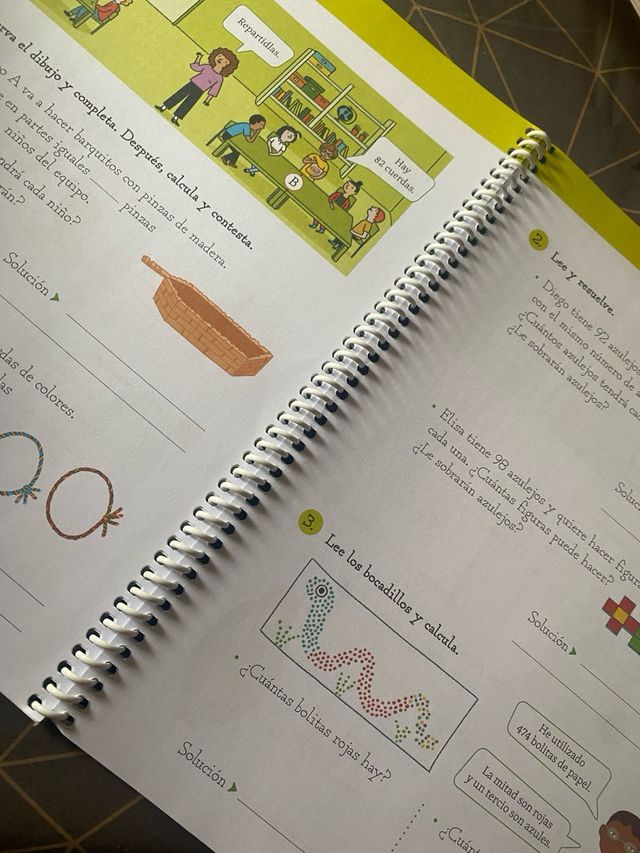 Repartidlas.
Hay
82 cuerdas.
B
el dibujo y completa. Después, calcula y contesta.
A va a hacer barquitos con pinzas de madera.
en partes iguales ____ pinzas
niños del equipo.
cada niño?
Solución
de colores.
2.
Lee y resuelve.
• Diego tiene 92 azulejos
con el mismo número de
¿Cuántos azulejos tendrá
¿Le sobrarán azulejos?
• Elisa tiene 98 azulejos y quiere hacer
cada una. ¿Cuántas figuras puede hacer?
¿Le sobrarán azulejos?
Solución
3.
Lee los bocadillos y calcula.
• ¿Cuántas bolitas rojas hay?
Solución
He utilizado
474 bolitas de papel.
La mitad son rojas
y un tercio son azules.